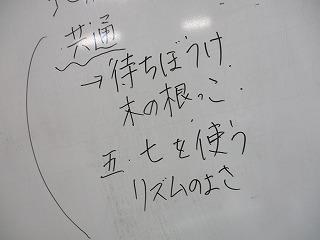 共通
→待ちぼうけ.
木の根っこ.
五.七を使う
リズムのよさ